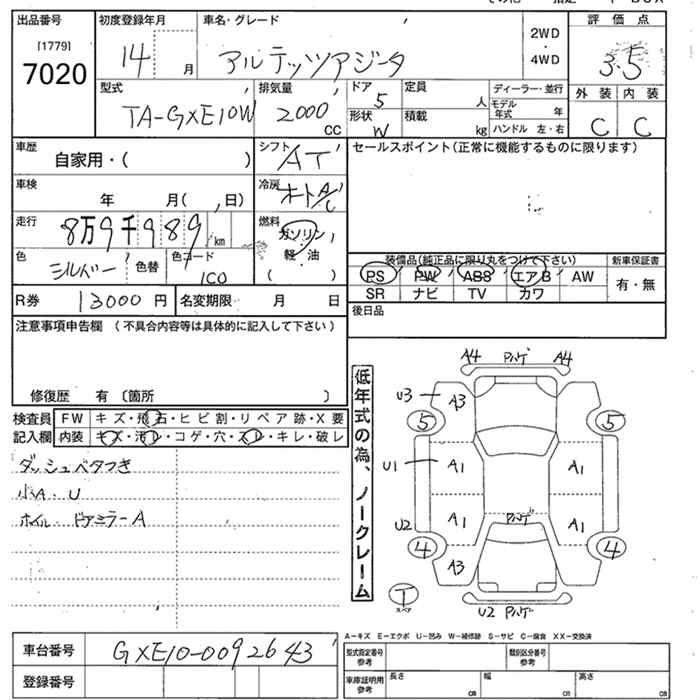 出品番号
[1779]
7020
初度登録年月
14 月
車名・グレード
アルテッツアジータ
2WD
・
4WD
評価点
3.5
外装 内装
C C
型式
TA-GXE10W
排気量
2000
CC
ドア
5
形状
W
定員
人
積載
kg
ディーラー・並行
モデル年式 年
ハンドル 左・右
車歴
自家用・( )
シフト
AT
セールスポイント(正常に機能するものに限ります)
車検
年 月( , 日)
冷房
オートA/C
走行
8万9千989 km
燃料
ガソリン
軽・油
( )
色
シルバー
色替
色コード
1C0
装備品(純正品に限り丸をつけて下さい)
PS PW ABS エアB AW
SR ナビ TV カワ
新車保証書
有・無
R券
13000 円
名変期限 月 日
後日品
注意事項申告欄 (不具合内容等は具体的に記入して下さい)
修復歴 有 〔箇所 〕
検査員
記入欄
FW キズ・飛石・ヒビ割・リペア跡・X要
内装 キズ・汚レ・コゲ・穴・スレ・キレ・破レ
ダッシュベタつき
小A・U
ホイル ドアミラーA
低年式の為、ノークレーム
A4 アハゲ A4
U3 A3
5 5
U1 A1 A1
U2 A1 アハゲ A1
4 4
A3
T
スペア
U2 アハゲ
A-キズ E-エクボ U-凹み W-補修跡 S-サビ C-腐食 XX-交換済
車台番号
GXE10-0092643
登録番号
型式指定番号
参考
類別区分番号
参考
車庫証明用
参考
長さ cm
幅 cm
高さ cm